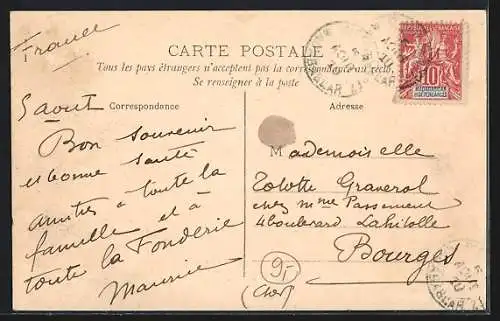 France
CARTE POSTALE
Tous les pays étrangers n'acceptent pas la correspondance au recto,
Se renseigner à la poste
Correspondance
Adresse
5 aout
Bon souvenir
et bonne santé
amitiés à toute la
famille et à
toute la Fonderie
Maurice
Mademoiselle
Totote Graverol
chez mme Passement
4 boulevard Lahitolle
Bourges
(Cher)
RÉPUBLIQUE FRANÇAISE
10